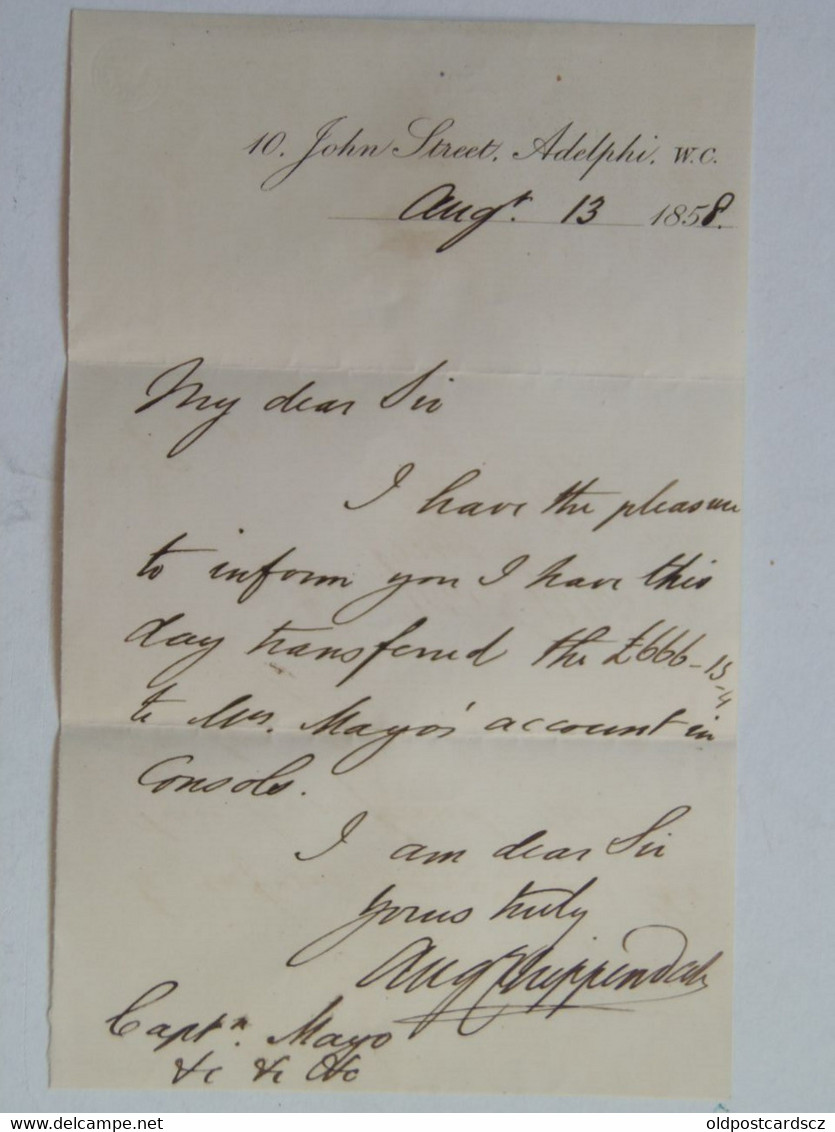 10. John Street, Adelphi, W.C.
Augt. 13 1858.
My dear Sir
I have the pleasure
to inform you I have this
day transferred the £666-15-4
to Mrs. Mayo's account in
Consols.
I am dear Sir
yours truly
Augs Chippendale
Captn. Mayo
&c &c &c
oldpostcardscz